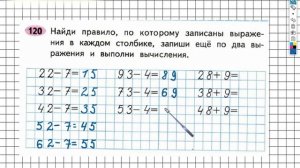 120 Найди правило, по которому записаны выраже-
ния в каждом столбике, запиши ещё по два вы-
ражения и выполни вычисления.
22-7=15 93-4=89 28+9=
32-7=25 73-4=69 38+9=
42-7=35 53-4= 48+9=
52-7=45
62-7=55